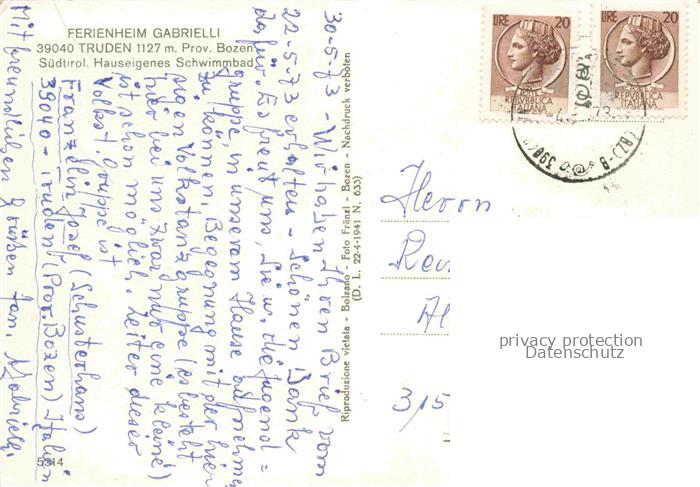 FERIENHEIM GABRIELLI
39040 TRUDEN 1127 m. Prov. Bozen
Südtirol. Hauseigenes Schwimmbad
30-5-73 - Wir haben Ihren Brief vom
22-5-73 erhalten - Schönen Dank
dafür - Es freut uns, Sie u. die Jugend =
gruppe, in unserem Hause aufnehmen
zu können. Begegnung mit der hier
sigen Volkstanzgruppe (es besteht
hier bei uns zwar nur eine kleine)
ist schon möglich. Leiter dieser
Volkst. Gruppe ist
Franzelin Josef (Schusterhans)
39040 - Truden (Prov. Bozen) - Italien
Mit freundlichen Grüßen Fam. Gabrielli
5314
Riproduzione vietata - Bolzano - Foto Fränzl - Bozen - Nachdruck verboten
(D. L. 22-4-1941 N. 633)
LIRE 20
REPVBBLICA
ITALIANA
LIRE 20
POSTE
REPVBBLICA
ITALIANA
73
(BZ)-B
Herrn
privacy protection
Datenschutz